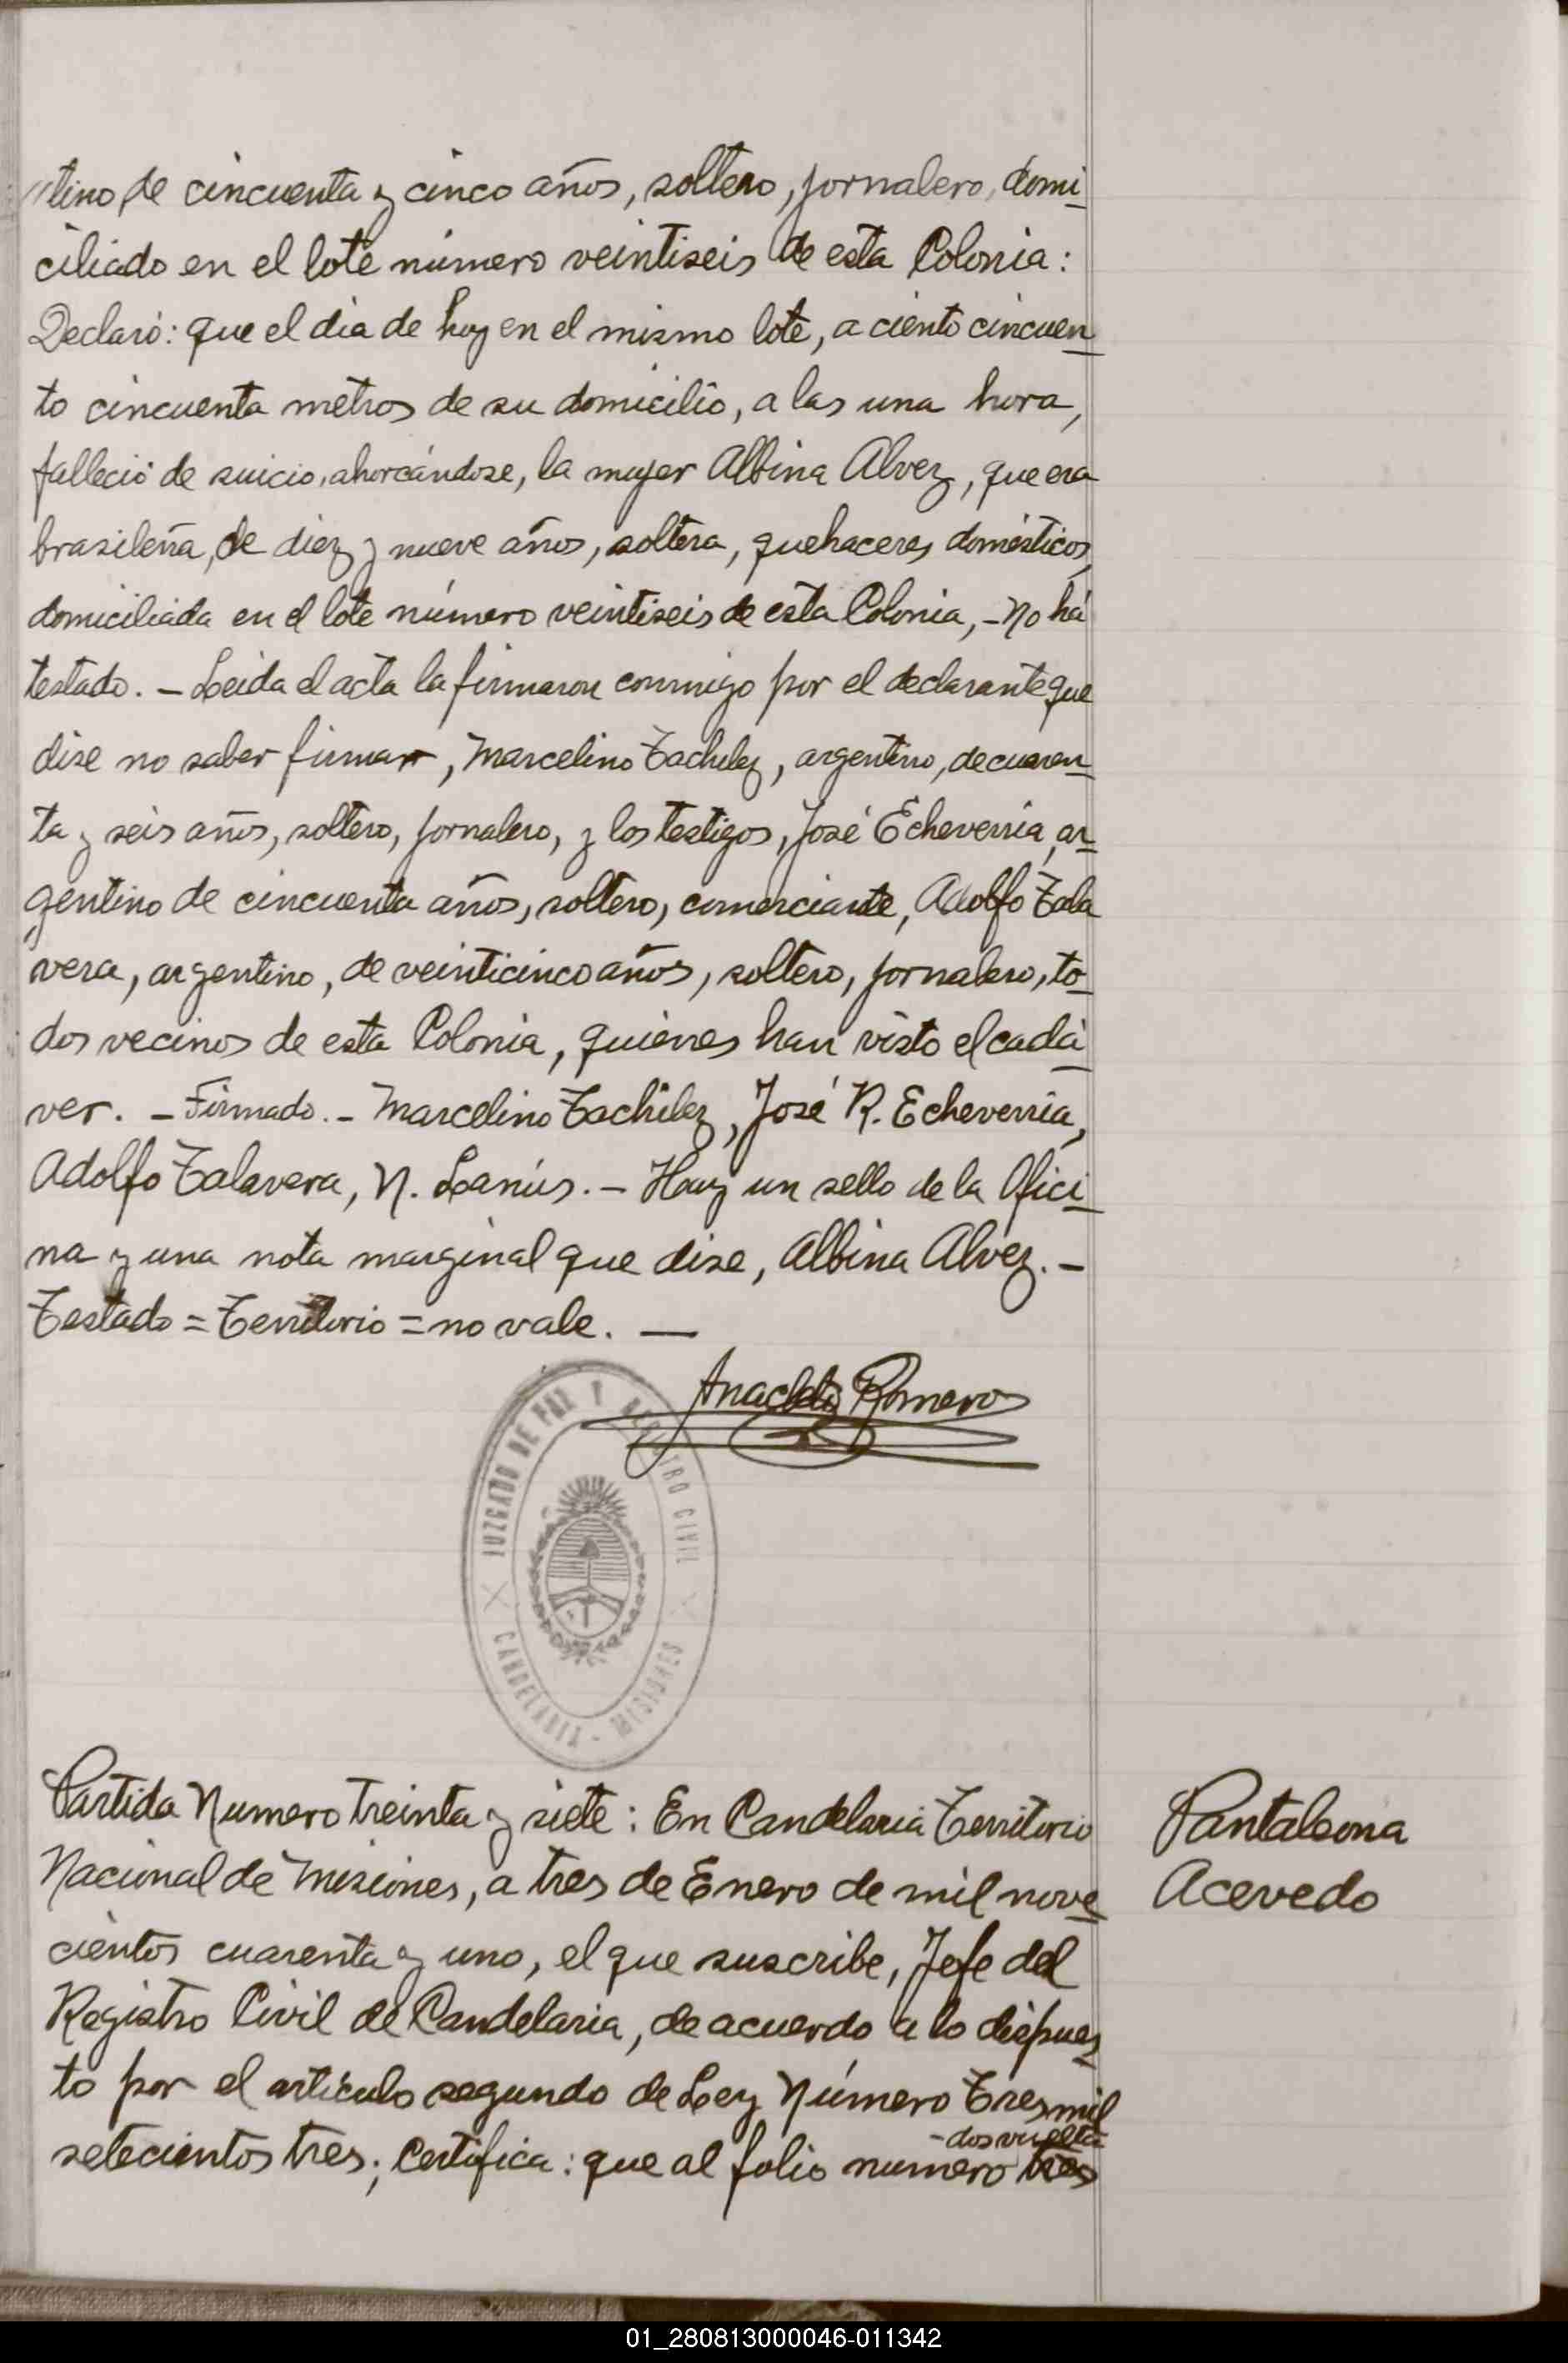 "tino, de cincuenta y cinco años, soltero, jornalero, domi-
ciliado en el lote número veintiseis de esta Colonia:
Declaró: que el dia de hoy en el mismo lote, a ciento cincuen-
to cincuenta metros de su domicilio, a las una hora,
falleció de suicio, ahorcándose, la mujer Albina Alvez, que era
brasileña, de diez y nueve años, soltera, quehaceres domésticos,
domiciliada en el lote número veintiseis de esta Colonia, - No há
testado. - Leida el acta la firmaron conmigo por el declarante que
dise no saber firmar, Marcelino Tachilez, argentino, de cuaren-
ta y seis años, soltero, jornalero, y los testigos, José Echeverria, ar-
gentino de cincuenta años, soltero, comerciante, Adolfo Tala
vera, argentino, de veinticinco años, soltero, jornalero, to-
dos vecinos de esta Colonia, quienes han visto el cadá-
ver. - Firmado. - Marcelino Tachilez, José R. Echeverria,
Adolfo Talavera, N. Lanús. - Hay un sello de la Ofici-
na y una nota marginal que dise, Albina Alvez. -
Testado = Territorio = no vale. —
Anacleto Romero
JUZGADO DE PAZ Y REGISTRO CIVIL
CANDELARIA - MISIONES
Partida Numero treinta y siete: En Candelaria Territorio
Nacional de Misiones, a tres de Enero de mil nove-
cientos cuarenta y uno, el que suscribe, Jefe del
Registro Civil de Candelaria, de acuerdo a lo dispues-
to por el artículo segundo de Ley Número Tres mil
- dos vuelta
setecientos tres; Certifica: que al folio numero tres
Pantaleona
Acevedo
01_280813000046-011342